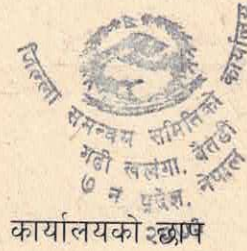 जिल्ला समन्वय समितिको कार्यालय
गढी खलंगा, बैतडी
७ नं प्रदेश, नेपाल
कार्यालयको छाप